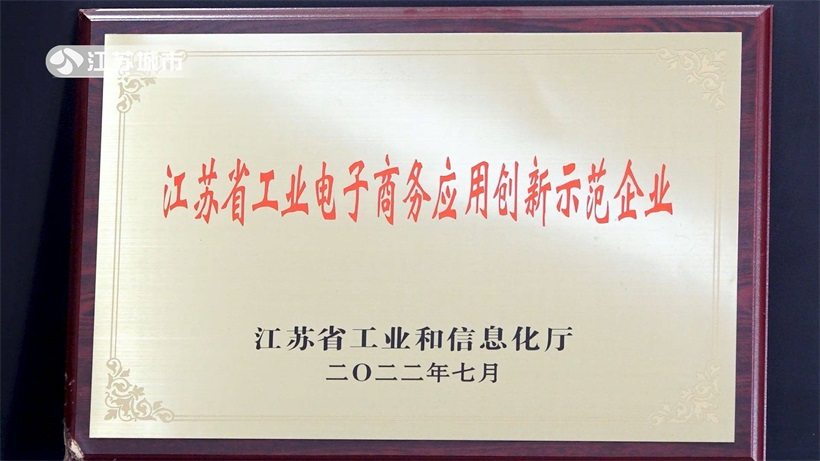 江苏城市
江苏省工业电子商务应用创新示范企业
江苏省工业和信息化厅
二〇二二年七月